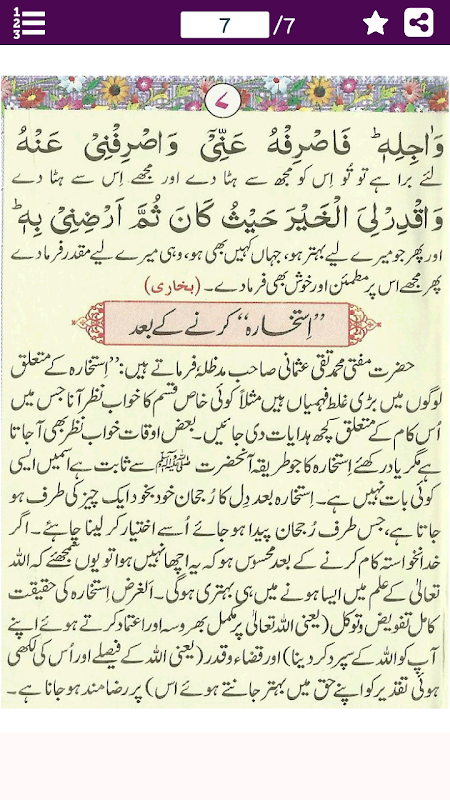 7 /7
۷
وَاٰجِلِهٖ ؕ فَاصْرِفْهُ عَنِّیْ وَاصْرِفْنِیْ عَنْهُ
لئے برا ہے تو تُو اِس کو مجھ سے ہٹا دے اور مجھے اِس سے ہٹا دے
وَاقْدِرْ لِیَ الْخَیْرَ حَیْثُ کَانَ ثُمَّ اَرْضِنِیْ بِهٖ ؕ
اور پھر جو میرے لیے بہتر ہو، جہاں کہیں بھی ہو، وہی میرے لیے مقدر فرما دے
پھر مجھے اس پر مطمئن اور خوش بھی فرما دے۔ (بخاری)
’’اِستخارہ‘‘ کرنے کے بعد
حضرت مفتی محمد تقی عثمانی صاحب مدظلہٗ فرماتے ہیں: ’’اِستخارہ کے متعلق
لوگوں میں بڑی غلط فہمیاں ہیں مثلاً کوئی خاص قسم کا خواب نظر آنا جس میں
اُس کام کے متعلق کچھ ہدایات دی جائیں۔ بعض اوقات خواب نظر بھی آ جاتا
ہے مگر یاد رکھئے اِستخارہ کا جو طریقہ آنحضرت ﷺ سے ثابت ہے اسمیں ایسی
کوئی بات نہیں ہے۔ اِستخارہ بعد دِل کا رُجحان خود بخود ایک چیز کی طرف ہو
جاتا ہے، جس طرف رُجحان پیدا ہو جائے اُسے اختیار کر لینا چاہئے۔ اگر
خدانخواستہ کام کرنے کے بعد محسوس ہو کہ یہ اچھا نہیں ہوا تو یوں سمجھئے کہ اللہ
تعالٰی کے علم میں ایسا ہونے میں ہی بہتری ہوگی۔ الغرض اِستخارہ کی حقیقت
کامل تفویض و توکل (یعنی اللہ تعالٰی پر مکمل بھروسہ اور اعتماد کرتے ہوئے اپنے
آپ کو اللہ کے سپرد کر دینا) اور قضاء و قدر (یعنی اللہ کے فیصلے اور اُس کی لکھی
ہوئی تقدیر کو اپنے حق میں بہتر جانتے ہوئے اس) پر رضامند ہو جانا ہے۔